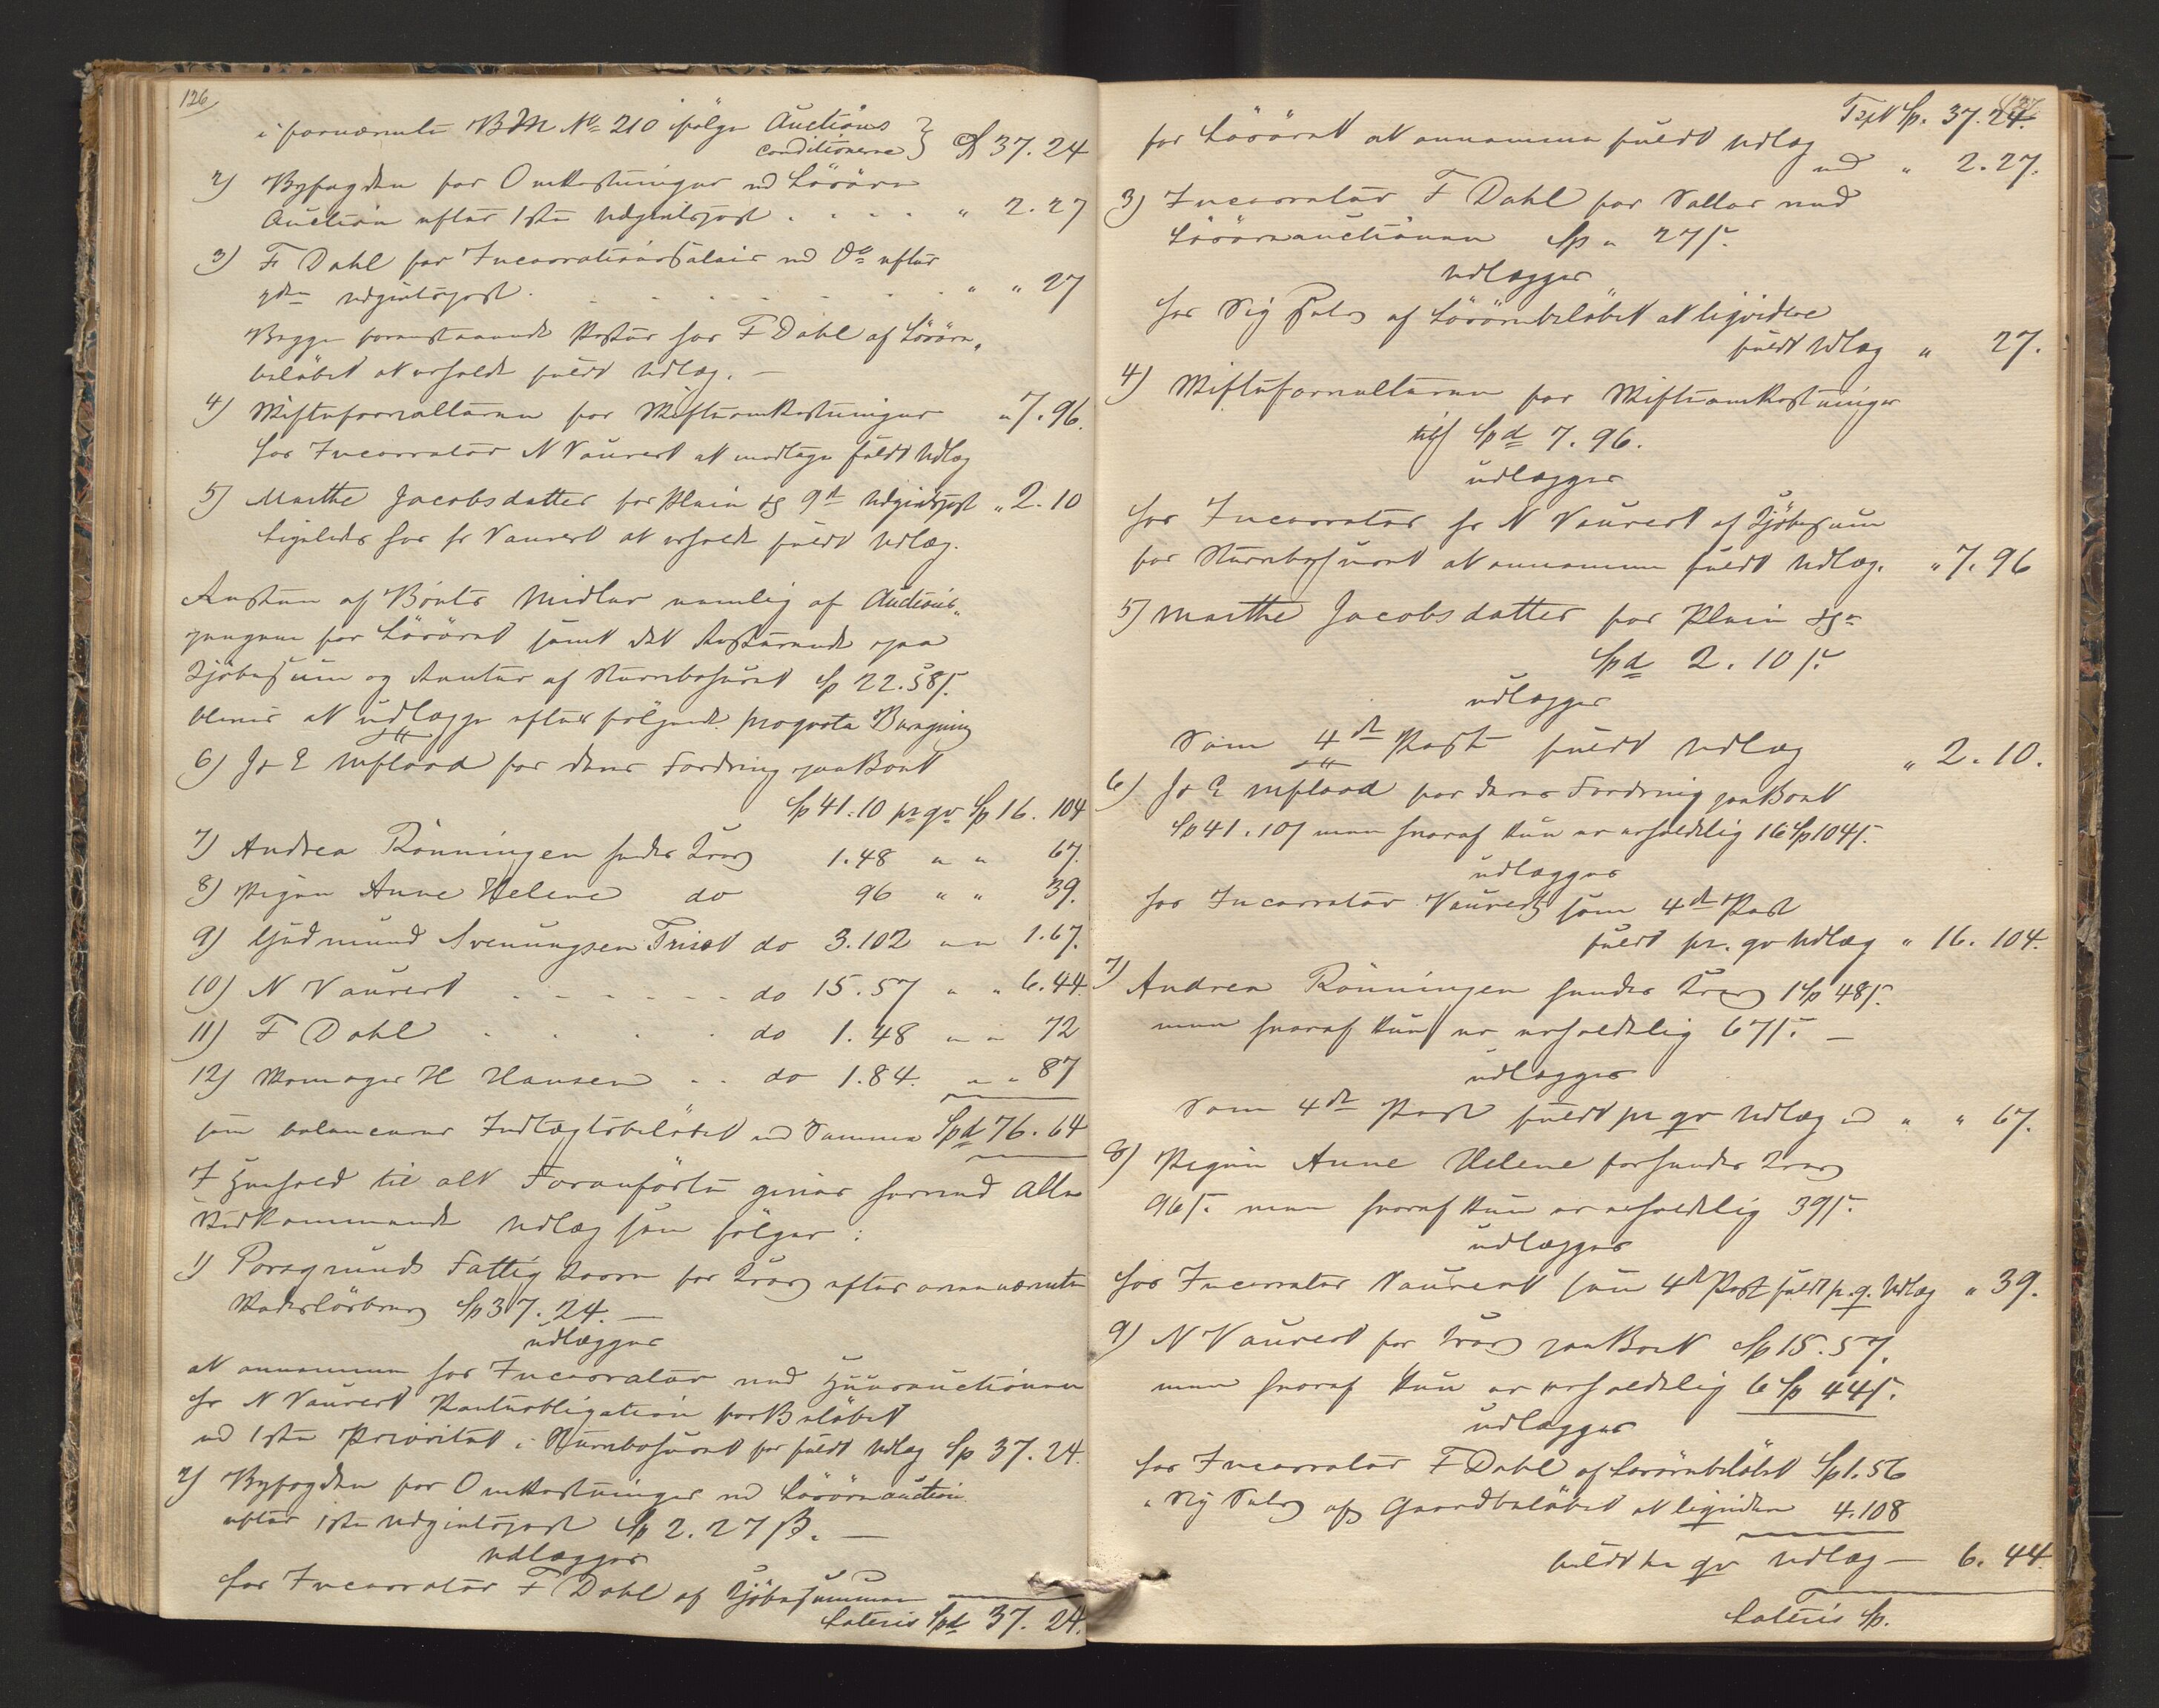 126
i fornævnte BM No 210 ifølge Auctions
conditionerne } Sp 37.24
2) Byfogden for Omkostninger ved Løsøre
Auction efter 1ste Udgiftspost . . . . " 2.27
3) F Dahl for Incassationssalair ved Do efter
2den Udgiftspost . . . . . . " " 27
Begge foranstaaende Poster hos F Dahl af Løsøre-
beløbet at erholde fuldt Udlæg. —
4) Skifteforvalteren for Skifteomkostninger " 7.96.
hos Incassator N Vauvert at modtage fuldt Udlæg
5) Marthe Jacobsdatter for Pleie og 9de Udgiftspost " 2.10
Ligeledes hos hr Vauvert at erholde fuldt Udlæg.
Resten af Boets Midler nemlig af Auctions-
pengene for Løsøret samt det Resterende paa
Kjøbesum og Renter af Steenbohuset Sp 22.58 s.
bliver at udlægge efter følgende proqvota Beregning
6) J & E Wiflaad for deres Fordring paa Boet
Sp 41.10 pr qv Sp 16.104
7) Andrea Rönningen hendes Krav 1.48 " " 67.
8) Pigen Anne Helene do 96 " " 39.
9) Gudmund Svenungsen Triset do 3.102 " " 1.67.
10) N Vauvert . . . . . . do 15.57 " " 6.44.
11) F Dahl . . . . do 1.48 " " 72
12) Skomager H Hansen . . do 1.84. " " 87
som balancerer Indtægtsbeløbet med Summa Spd 76.64
I Henhold til alt Foranførte gives herved Alle
Vedkommende Udlæg som følger:
1) Porsgrunds Fattigkasse for Krav efter ovennævnte
Sp 37.24. —
udlægges
at annamme hos Incassator ved Huusauctionen
Hr N Vauvert Panteobligation for Beløbet
med 1ste Prioritet i Steenbohuset for fuldt Udlæg Sp 37.24.
2) Byfogden for Omkostninger ved Løsøreauction
efter 1ste Udgiftspost Sp 2.27 ß. —
udlægges
hos Incassator F Dahl af Kjøbesummen
Lateris Spd 37.24.
127.
Tspt Sp. 37.24.
for Løsøret at annamme fuldt Udlæg
med " 2.27.
3) Incassator F Dahl for Sallar ved
Løsøreauctionen Sp " 27 s.
udlægges
hos Sig Selv af Løsørebeløbet at liqvidere
fuldt Udlæg " 27.
4) Skifteforvalteren for Skifteomkostninger
tils Spd 7.96.
udlægges
hos Incassator hr N Vauvert af Kjøbesum
for Steenbohuset at annamme fuldt Udlæg. " 7.96
5) Marthe Jacobsdatter for Pleie &c
Spd 2.10 s.
udlægges
Som 4de Post fuldt Udlæg " 2.10.
6) J & E Wiflaad for deres Fordring paa Boet
Sp 41.10 s men hvoraf kun er erholdelig 16 Sp 104 s.
udlægges
hos Incassator Vauvert som 4de Post
fuldt pr. qv Udlæg " 16.104.
7) Andrea Rönningen hendes Krav 1 Sp 48 s.
men hvoraf kun er erholdelig 67 s. —
udlægges
Som 4de Post fuldt pr qv Udlæg med " " 67.
8) Pigen Anne Helene for hendes Krav
96 s. men hvoraf kun er erholdelig 39 s.
udlægges
hos Incassator Vauvert som 4de Post fuldt p. q. Udlæg " 39.
9) N Vauvert for Krav paa Boet Sp 15.57.
men hvoraf kun er erholdelig 6 Sp 44 s.
udlægges
hos Incassator F Dahl af Løsørebeløbet Sp 1.56
" Sig Selv af Gaardbeløbet at liqvidere 4.108
fuldt pr qv Udlæg — 6.44.
Lateris Sp.